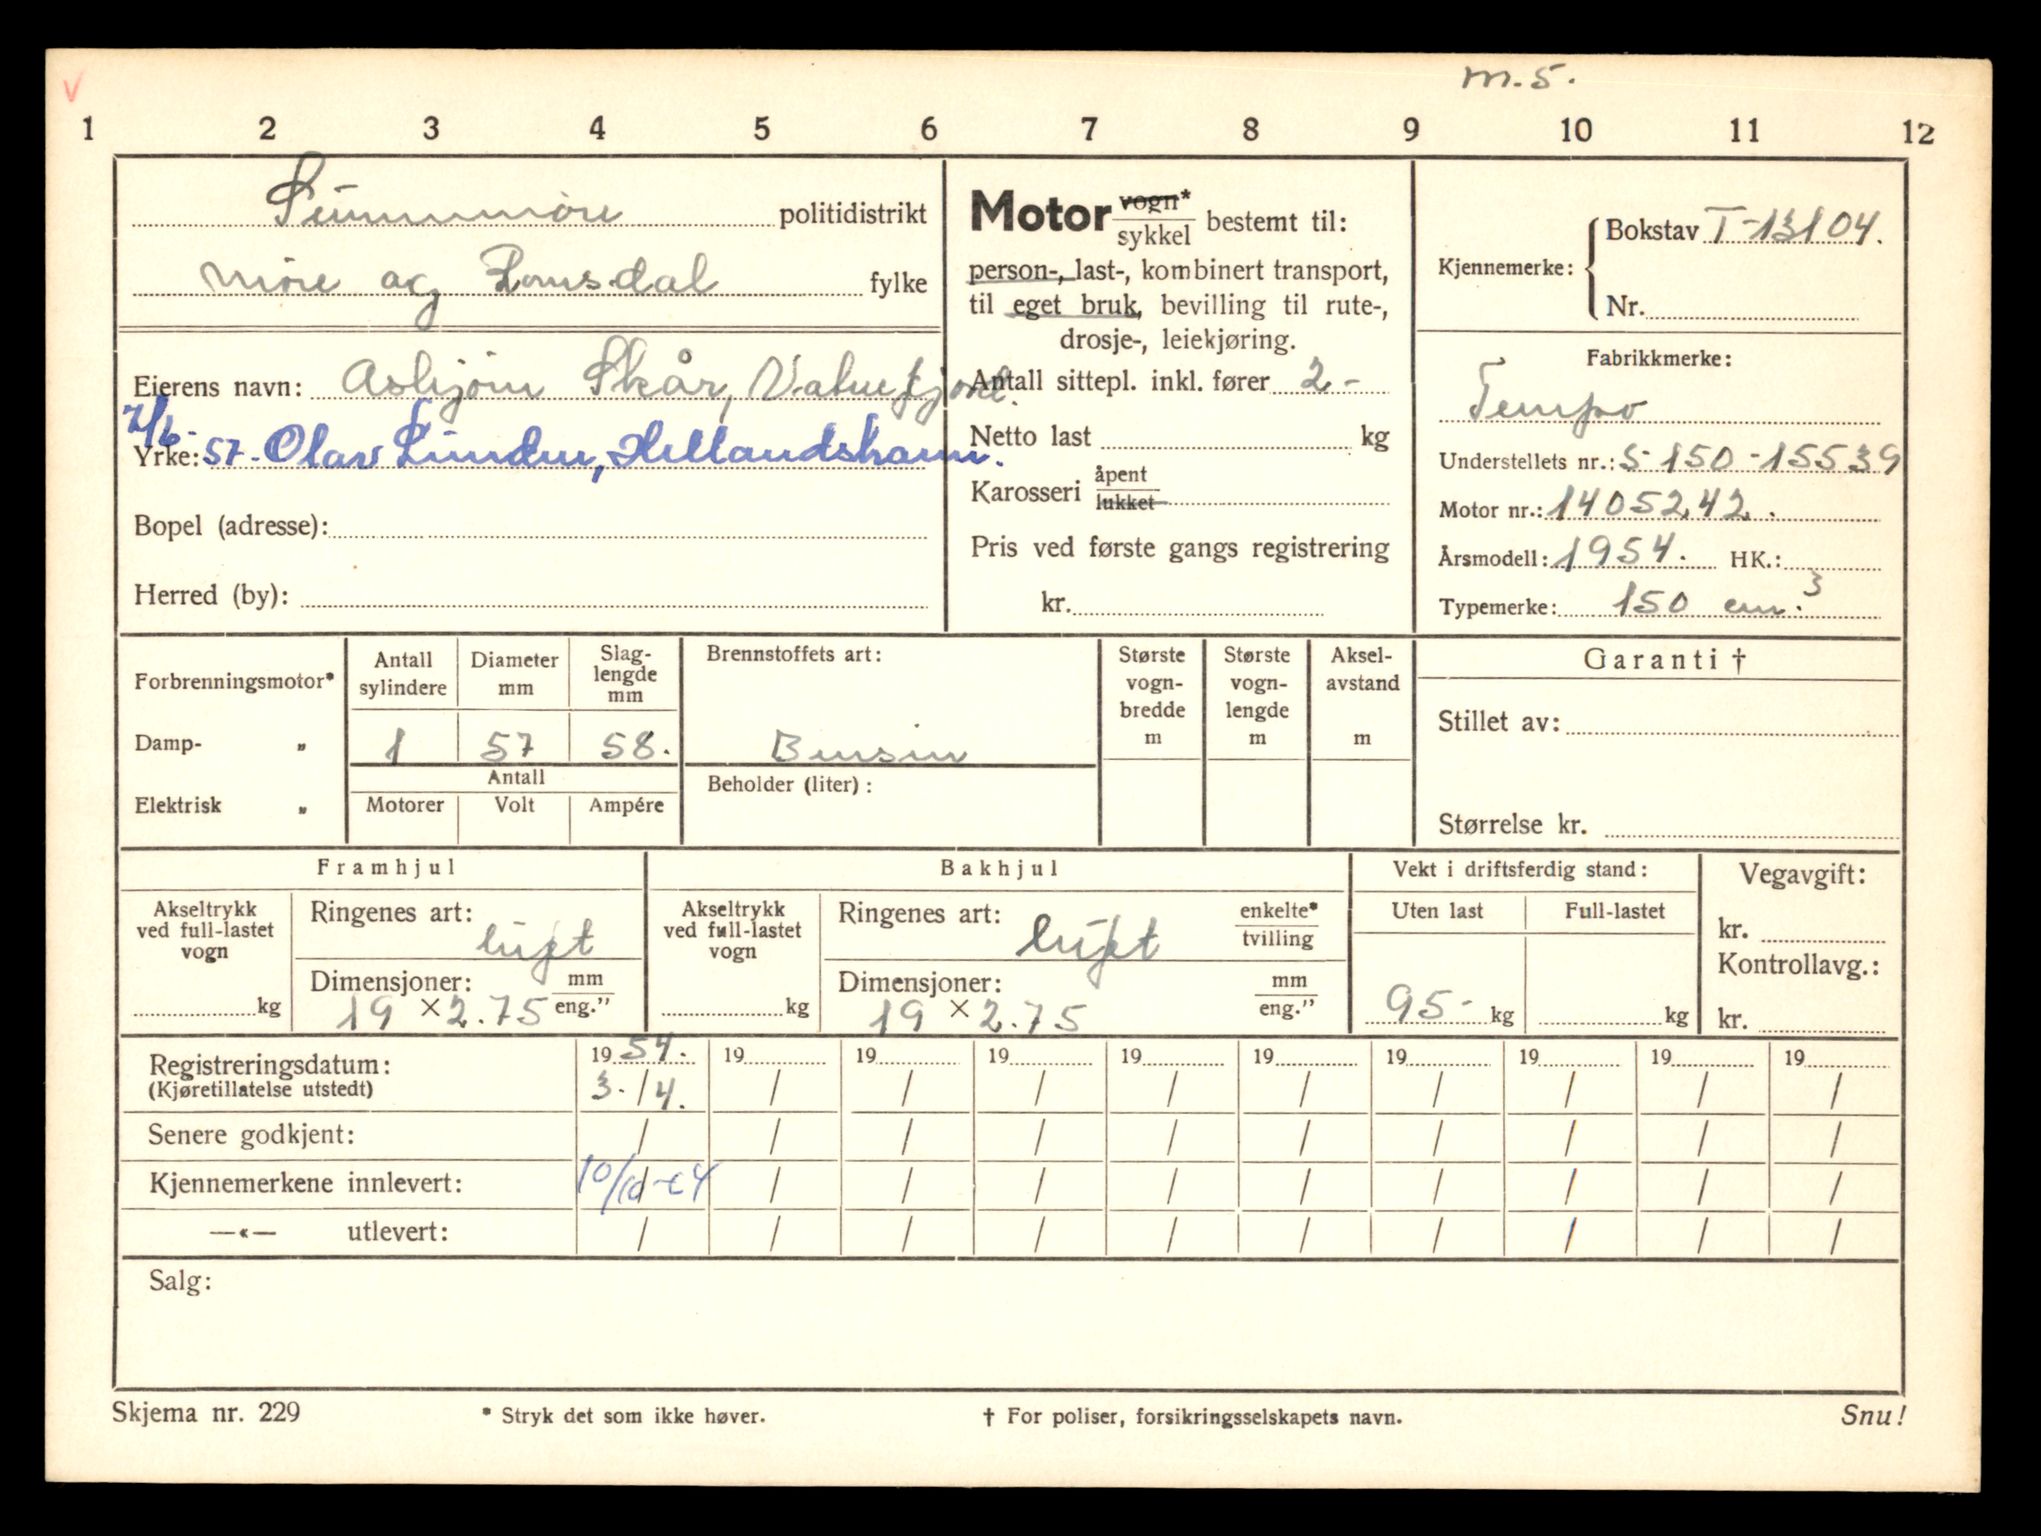 V
m. 5.
1 2 3 4 5 6 7 8 9 10 11 12
Sunnmøre politidistrikt
Møre og Romsdal fylke
Eierens navn: Asbjørn Skår, Vatnefjord.
7/6-
Yrke: 57- Olav Lunden, Hellandshamn.
Bopel (adresse):
Herred (by):
Motor vogn* / sykkel bestemt til:
person-, last-, kombinert transport,
til eget bruk, bevilling til rute-,
drosje-, leiekjøring.
Antall sittepl. inkl. fører 2.-
Netto last kg
Karosseri åpent / lukket
Pris ved første gangs registrering
kr.
Kjennemerke: Bokstav T-13104.
Nr.
Fabrikkmerke:
Tempo
Understellets nr.: S-150-15539
Motor nr.: 1405242.
Årsmodell: 1954. HK.:
Typemerke: 150 cm.3
Forbrenningsmotor*
Damp- „
Elektrisk „
Antall sylindere
Diameter mm
Slag-
lengde
mm
1 57 58.
Antall
Motorer Volt Ampére
Brennstoffets art:
Bensin
Beholder (liter) :
Største
vogn-
bredde
m
Største
vogn-
lengde
m
Aksel-
avstand
m
Garanti †
Stillet av:
Størrelse kr.
Framhjul
Akseltrykk
ved full-lastet
vogn
kg
Ringenes art:
luft
Dimensjoner: mm / eng.”
19 × 2.75
Bakhjul
Akseltrykk
ved full-lastet
vogn
kg
Ringenes art: enkelte* / tvilling
luft
Dimensjoner: mm / eng.”
19 × 2.75
Vekt i driftsferdig stand:
Uten last Full-lastet
95- kg kg
Vegavgift:
kr.
Kontrollavg.:
kr.
Registreringsdatum: 19 54. 19 19 19 19 19 19 19 19 19
(Kjøretillatelse utstedt) 3. / 4. / / / / / / / / /
Senere godkjent: / / / / / / / / / /
Kjennemerkene innlevert: 10/10-64 / / / / / / / / /
—«— utlevert: / / / / / / / / / /
Salg:
Skjema nr. 229 * Stryk det som ikke høver. † For poliser, forsikringsselskapets navn. Snu!